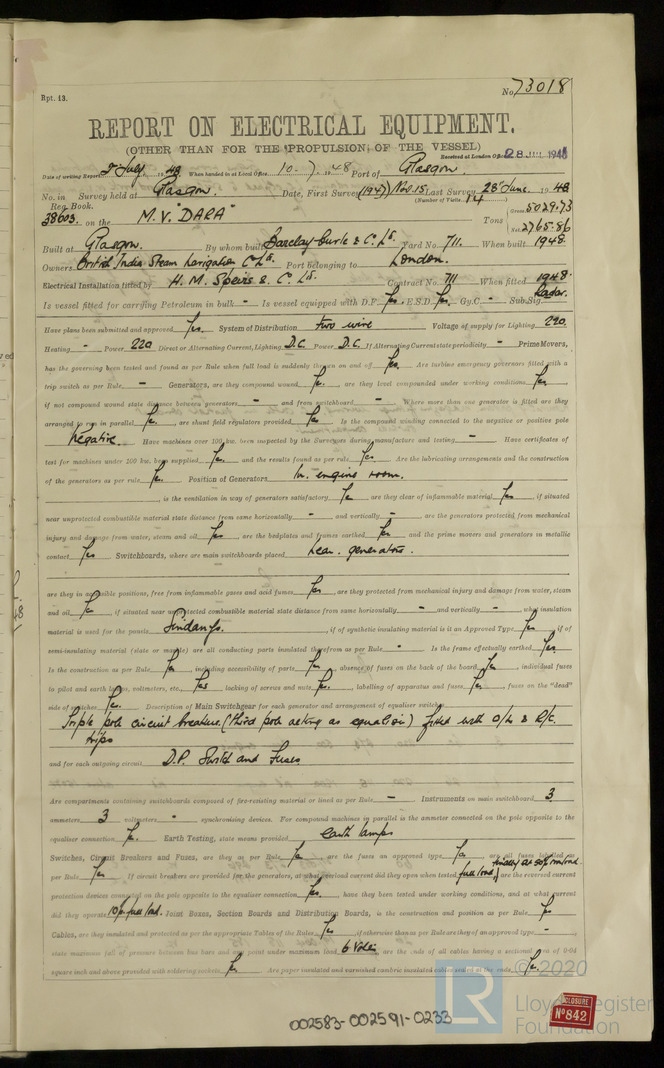 Rpt. 13.
No. 73018
REPORT ON ELECTRICAL EQUIPMENT.
(OTHER THAN FOR THE PROPULSION OF THE VESSEL)
Received at London Office 28 JUL 1948
Date of writing Report 2nd July 1948 When handed in at Local Office 10-7-1948 Port of Glasgow.
No. in Survey held at Glasgow. Date, First Survey (1947) Nov. 15 Last Survey 28th June 1948
Reg. Book. (Number of Visits 14)
38603. on the M.V. "DARA" Tons Gross 5029.73 Net 2765.86
Built at Glasgow. By whom built Barclay Curle & Co. Ld. Yard No. 711. When built 1948.
Owners British India Steam Navigation Co Ld. Port belonging to London.
Electrical Installation fitted by H. M. Speirs & Co. Ld. Contract No. 711 When fitted 1948.
Is vessel fitted for carrying Petroleum in bulk - Is vessel equipped with D.F. Yes E.S.D. Yes Gy.C. - Sub.Sig. Radar.
Have plans been submitted and approved Yes. System of Distribution two wire Voltage of supply for Lighting 220.
Heating - Power 220 Direct or Alternating Current, Lighting D.C. Power D.C. If Alternating Current state periodicity - Prime Movers,
has the governing been tested and found as per Rule when full load is suddenly thrown on and off Yes. Are turbine emergency governors fitted with a
trip switch as per Rule - Generators, are they compound wound Yes. are they level compounded under working conditions Yes
if not compound wound state distance between generators - and from switchboard - Where more than one generator is fitted are they
arranged to run in parallel Yes. are shunt field regulators provided Yes Is the compound winding connected to the negative or positive pole
Negative. Have machines over 100 kw. been inspected by the Surveyors during manufacture and testing - Have certificates of
test for machines under 100 kw. been supplied Yes and the results found as per rule Yes. Are the lubricating arrangements and the construction
of the generators as per rule Yes. Position of Generators In engine room.
is the ventilation in way of generators satisfactory Yes are they clear of inflammable material Yes if situated
near unprotected combustible material state distance from same horizontally - and vertically - are the generators protected from mechanical
injury and damage from water, steam and oil Yes are the bedplates and frames earthed Yes and the prime movers and generators in metallic
contact Yes Switchboards, where are main switchboards placed near generators.
are they in accessible positions, free from inflammable gases and acid fumes Yes are they protected from mechanical injury and damage from water, steam
and oil Yes if situated near unprotected combustible material state distance from same horizontally - and vertically - what insulation
material is used for the panels Sindanyo. if of synthetic insulating material is it an Approved Type Yes if of
semi-insulating material (slate or marble) are all conducting parts insulated therefrom as per Rule - Is the frame effectually earthed Yes.
Is the construction as per Rule Yes including accessibility of parts Yes absence of fuses on the back of the board Yes individual fuses
to pilot and earth lamps, voltmeters, etc. Yes locking of screws and nuts Yes. labelling of apparatus and fuses Yes fuses on the "dead"
side of switches Yes. Description of Main Switchgear for each generator and arrangement of equaliser switches
Triple pole circuit breakers. (third pole acting as equaliser) fitted with O/L & R/C.
trips
and for each outgoing circuit D.P. Switch and Fuses
Are compartments containing switchboards composed of fire-resisting material or lined as per Rule - Instruments on main switchboard 3
ammeters 3 voltmeters - synchronising devices. For compound machines in parallel is the ammeter connected on the pole opposite to the
equaliser connection Yes. Earth Testing, state means provided earth lamps
Switches, Circuit Breakers and Fuses, are they as per Rule Yes are the fuses an approved type Yes are all fuses labelled as
per Rule Yes If circuit breakers are provided for the generators, at what overload current did they open when tested full load, finally at 50% overload are the reversed current
protection devices connected on the pole opposite to the equaliser connection Yes. have they been tested under working conditions, and at what current
did they operate 10% full load. Joint Boxes, Section Boards and Distribution Boards, is the construction and position as per Rule Yes
Cables, are they insulated and protected as per the appropriate Tables of the Rules Yes if otherwise than as per Rule are they of an approved type -
state maximum fall of pressure between bus bars and any point under maximum load 6 Volts are the ends of all cables having a sectional area of 0.04
square inch and above provided with soldering sockets Yes Are paper insulated and varnished cambric insulated cables sealed at the ends Yes.
© 2020
LR
Lloyd's Register
Foundation
ENCLOSURE
No 842
002583-002591-0233